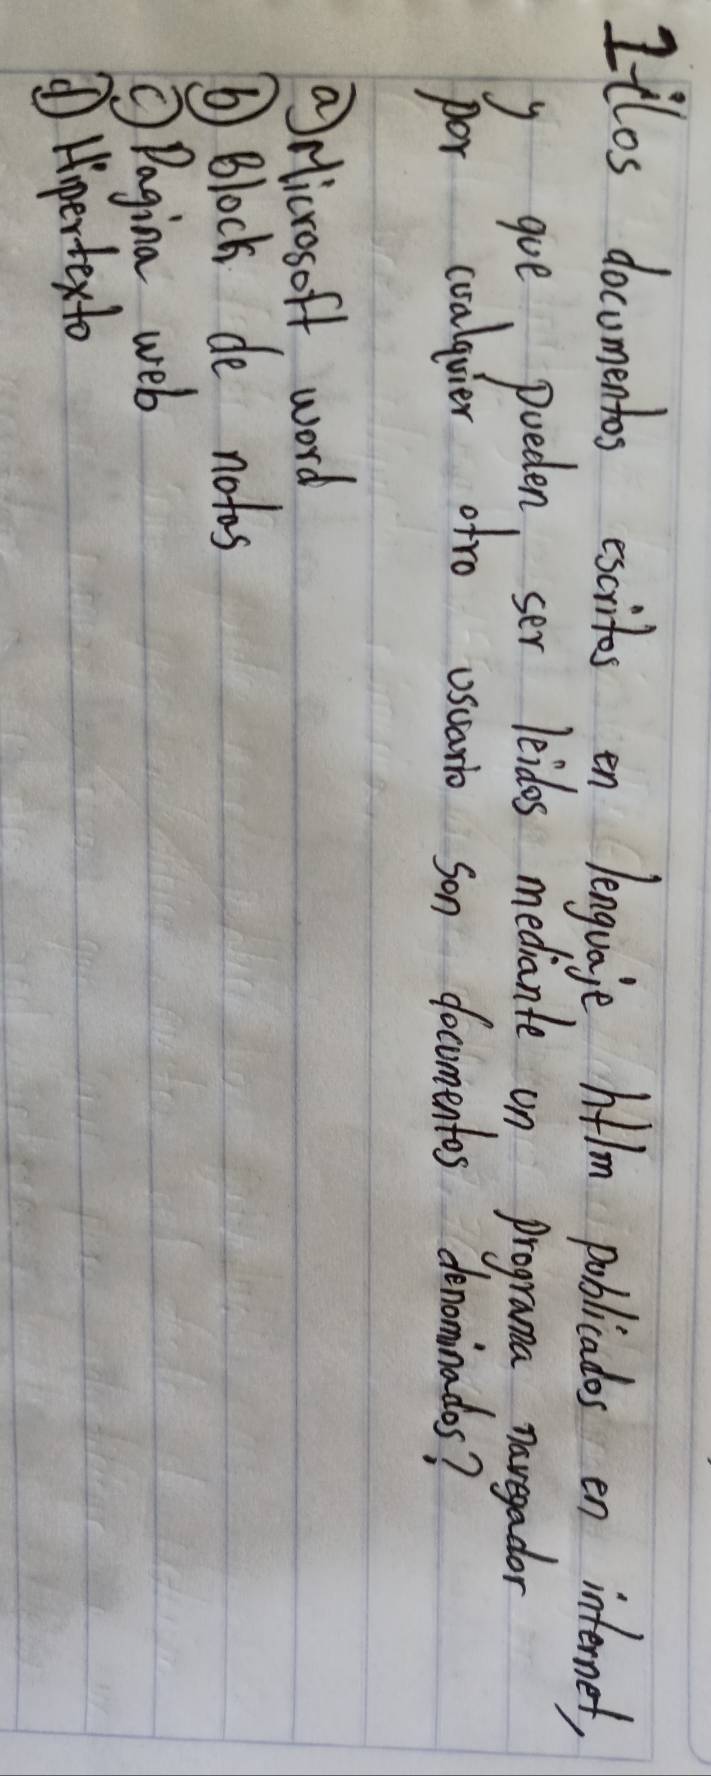 1-¿los documentos escritos en lenguaje htlm publicados en internet,
y que pueden ser leídos mediante un programa navegador
por cualquier otro usuario son documentos denominados?
a) Microsoft word
b) Block de notas
c) Pagina web
d) Hipertexto